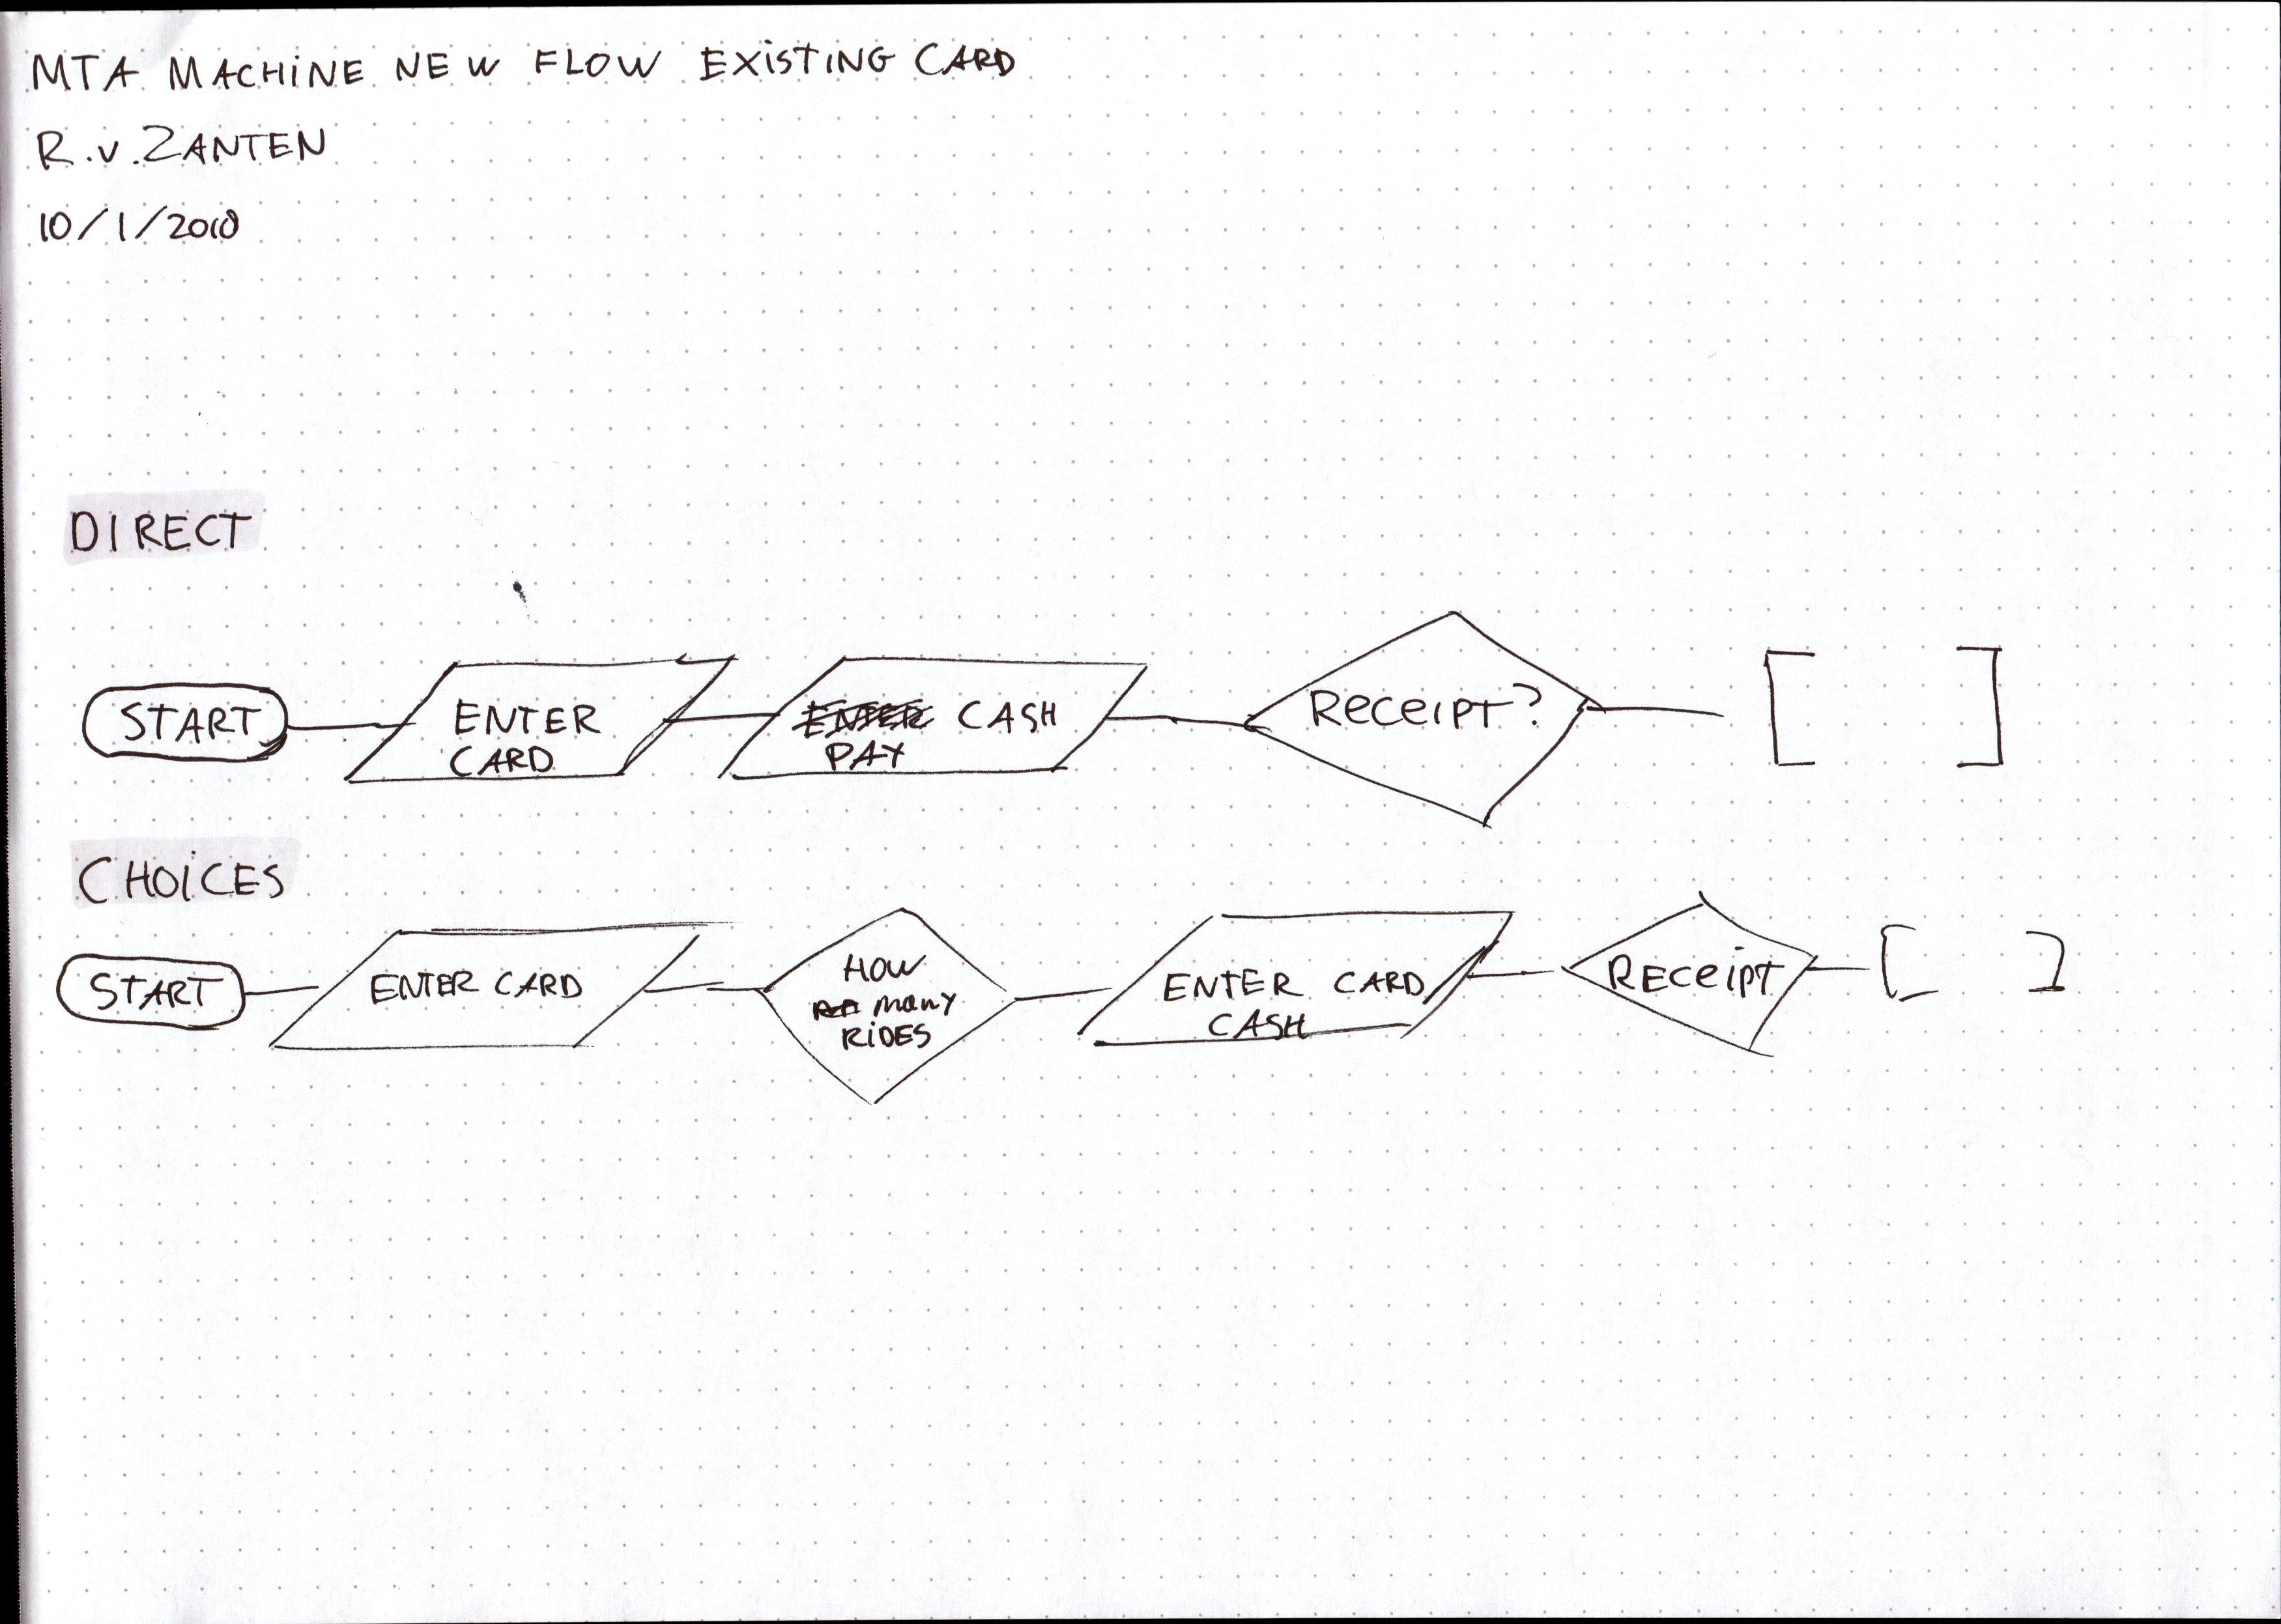 MTA MACHINE NEW FLOW EXISTING CARD
R.v.ZANTEN
10/1/2018
DIRECT
START
ENTER
CARD
CASH
PAY
RECEIPT?
CHOICES
START
ENTER CARD
HOW
MANY
RIDES
ENTER CARD
CASH
RECEIPT